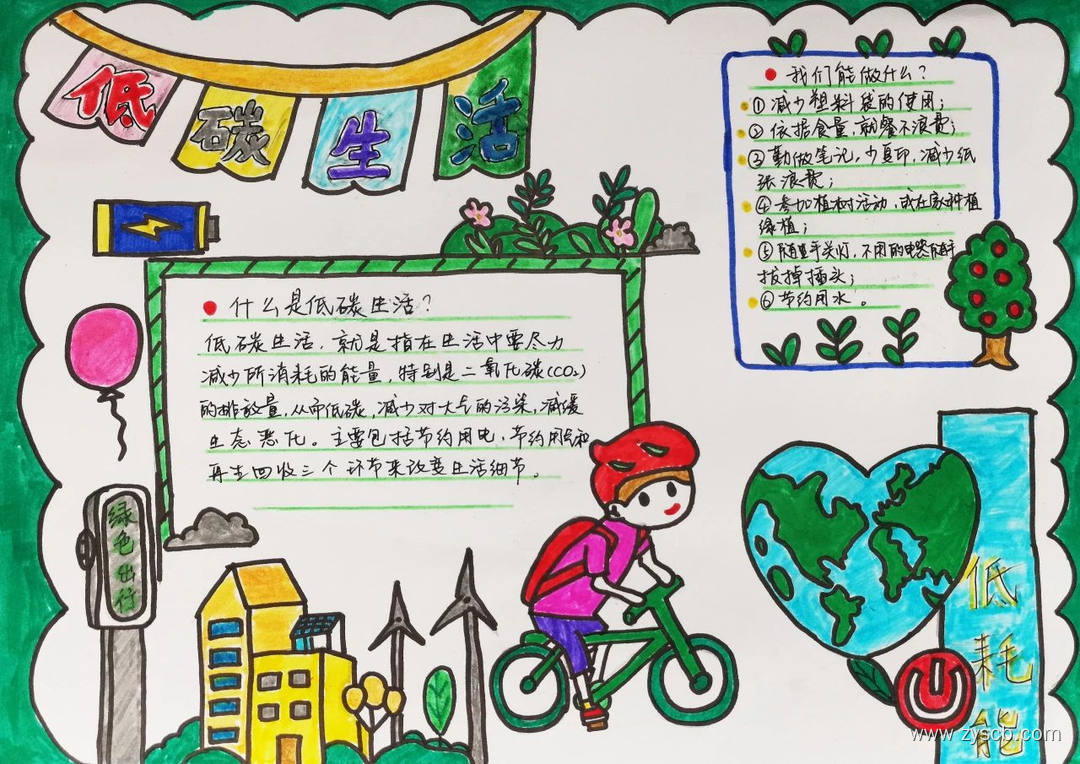 低碳生活
我们能做什么?
①减少塑料袋的使用;
②依据食量,就餐不浪费;
③勤做笔记,少复印,减少纸
张浪费;
④参加植树活动,或在家种植
绿植;
⑤随手关灯,不用的电器随手
拔掉插头;
⑥节约用水。
什么是低碳生活?
低碳生活,就是指在生活中要尽力
减少所消耗的能量,特别是二氧化碳(CO₂)
的排放量,从而低碳,减少对大气的污染,减缓
生态恶化。主要包括节约用电,节约用气和
再生回收三个环节来改变生活细节。
绿色出行
低耗能
www.zyscb.com